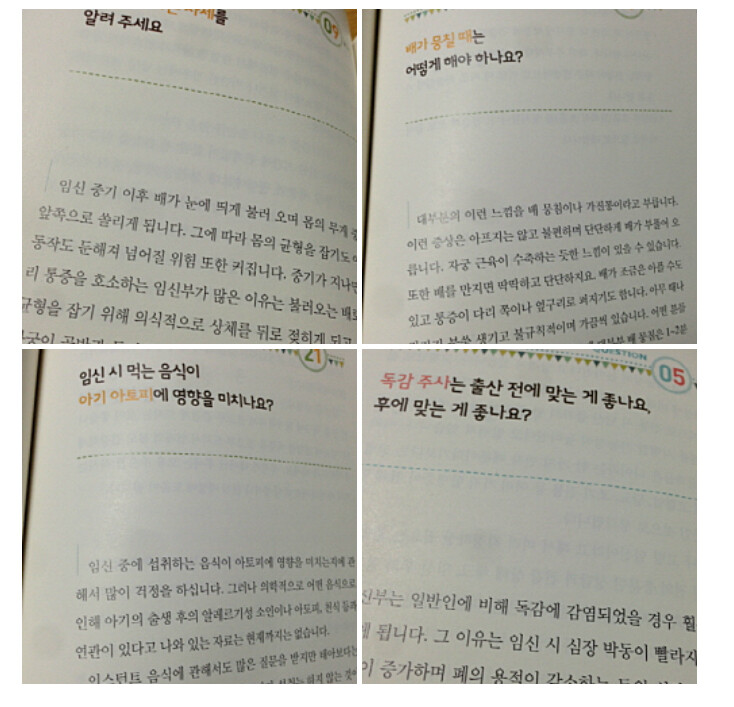 자세를
알려 주세요
09
임신 중기 이후 배가 눈에 띄게 불러 오며 몸의 무게
앞쪽으로 쏠리게 됩니다. 그에 따라 몸의 균형을 잡기도
동작도 둔해져 넘어질 위험 또한 커집니다. 중기가 지나면
리 통증을 호소하는 임신부가 많은 이유는 불러오는 배로
균형을 잡기 위해 의식적으로 상체를 뒤로 젖히게 되고
배가 뭉칠 때는
어떻게 해야 하나요?
대부분의 이런 느낌을 배 뭉침이나 가진통이라고 부릅니다.
이런 증상은 아프지는 않고 불편하며 단단하게 배가 부풀어 오
릅니다. 자궁 근육이 수축하는 듯한 느낌이 있을 수 있습니다.
또한 배를 만지면 딱딱하고 단단하지요. 배가 조금은 아플 수도
있고 통증이 다리 쪽이나 옆구리로 퍼지기도 합니다. 아무 때나
생기고 불규칙적이며 가끔씩 있습니다. 어떤 분들
배 뭉침은 1~2분
21
임신 시 먹는 음식이
아기 아토피에 영향을 미치나요?
임신 중에 섭취하는 음식이 아토피에 영향을 미치는지에 관
해서 많이 걱정을 하십니다. 그러나 의학적으로 어떤 음식으로
인해 아기의 출생 후의 알레르기성 소인이나 아토피, 천식 등과
연관이 있다고 나와 있는 자료는 현재까지는 없습니다.
인스턴트 음식에 관해서도 많은 질문을 받지만 태아보다는
QUESTION
05
독감 주사는 출산 전에 맞는 게 좋나요,
후에 맞는 게 좋나요?
신부는 일반인에 비해 독감에 감염되었을 경우 훨
에 됩니다. 그 이유는 임신 시 심장 박동이 빨라지
이 증가하며 폐의 용적이 감소하는 등의